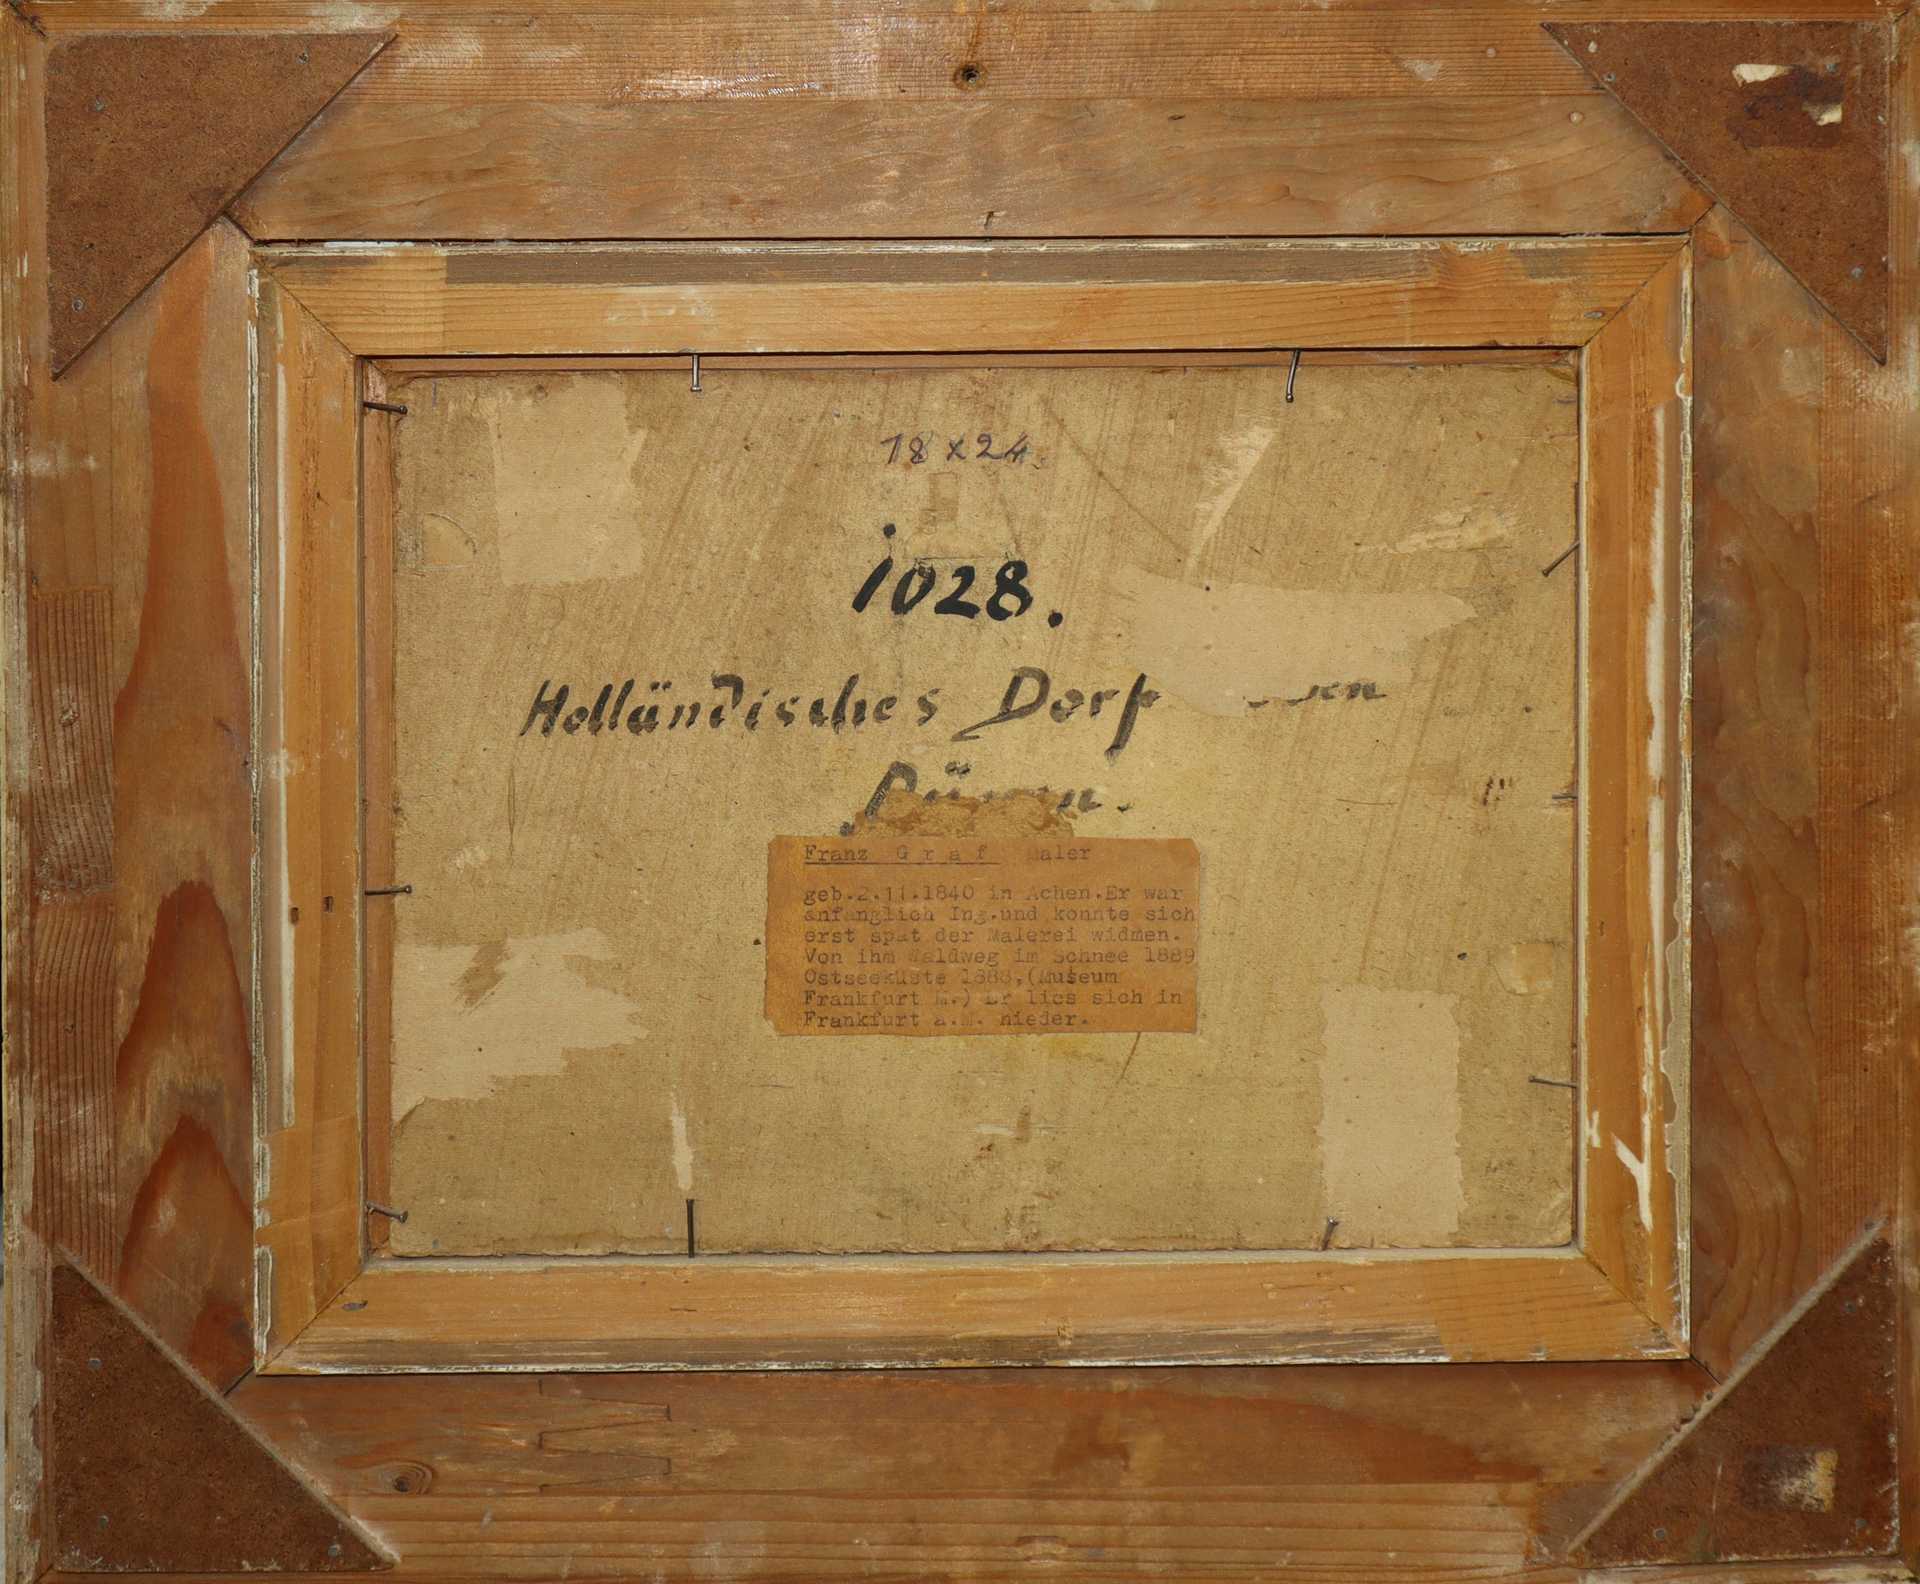 18 x 24.
1028.
Holländisches Dorf
Franz Graf Maler
geb.2.11.1840 in Achen.Er war
anfanglich Ing.und konnte sich
erst spat der Malerei widmen.
Von ihm Waldweg im Schnee 1889
Ostseeküste 1888,(Museum
Frankfurt M.) Er lies sich in
Frankfurt a.M. nieder.